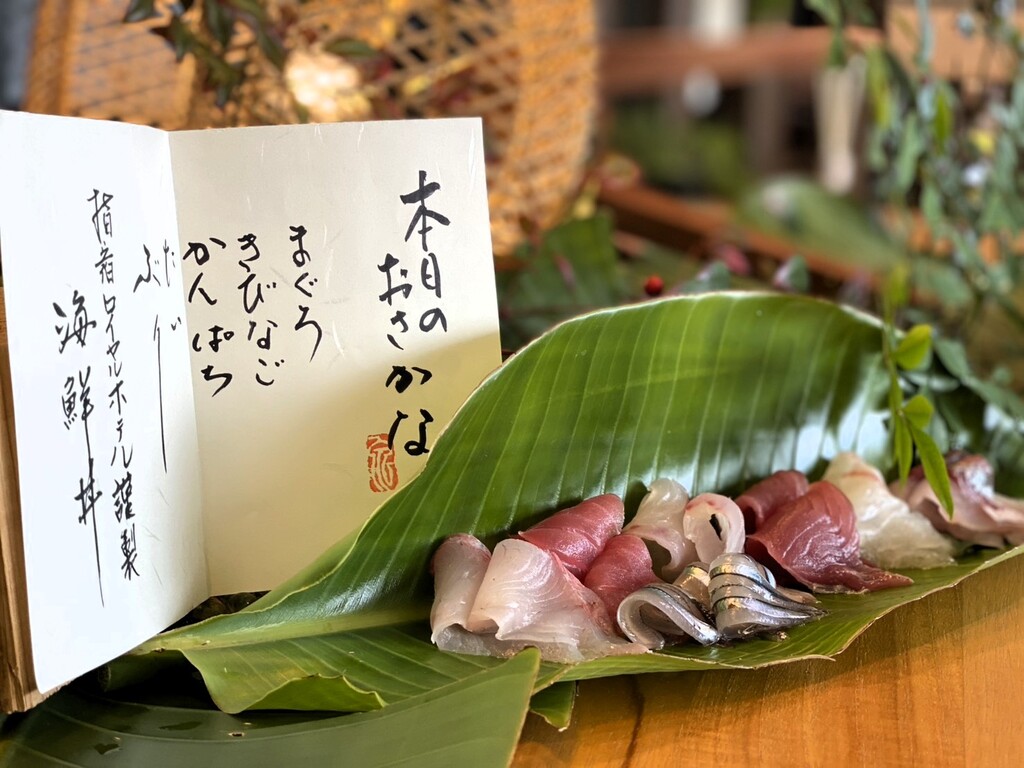 本日の
おさかな
まぐろ
きびなご
かんぱち
たい
ぶり
指宿ロイヤルホテル謹製
海鮮丼